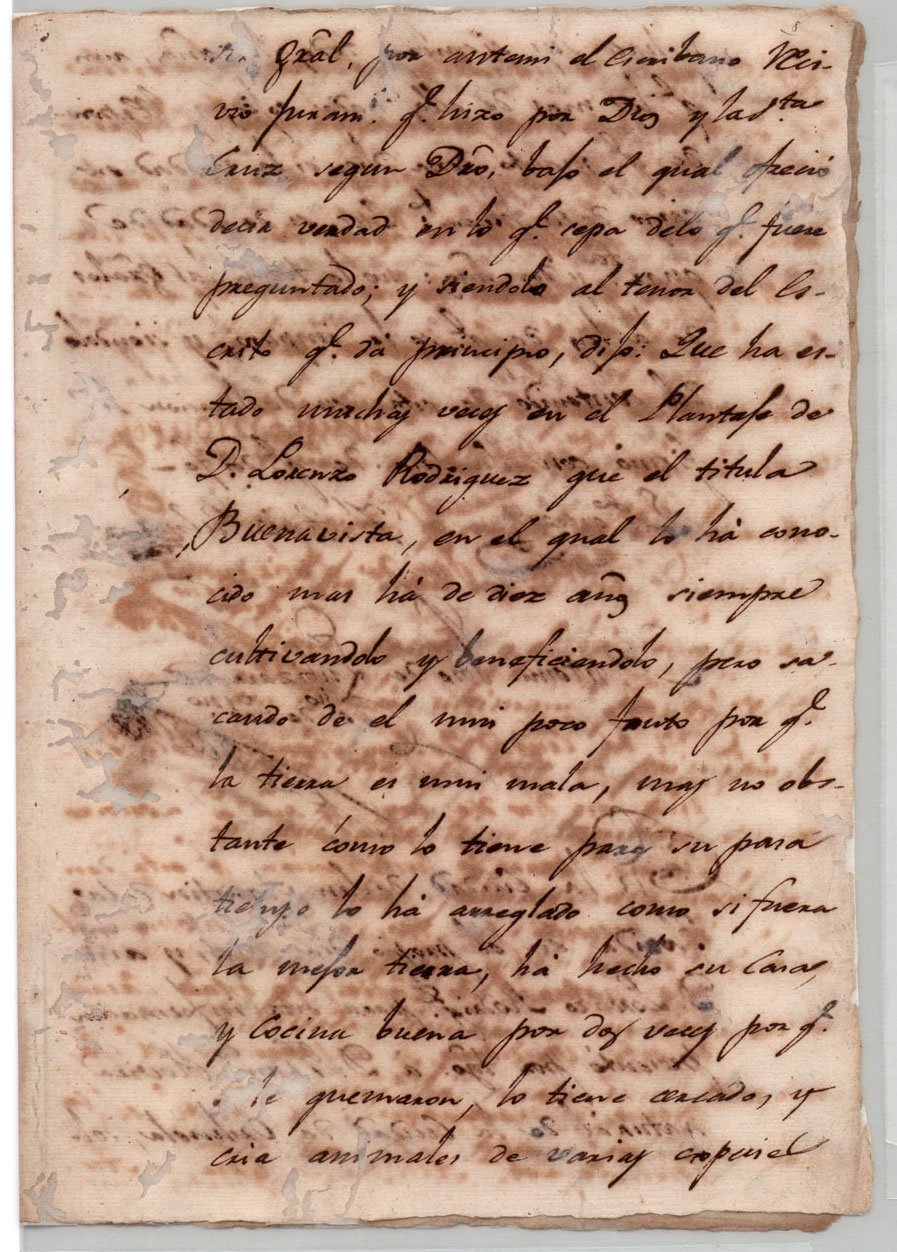 Grâl, por antemi el Escribano Reci-
vio juram.ᵗᵒ q.ᵉ hizo por Dios y la S.ᵗᵃ
Cruz segun Dr̃o, bajo el qual ofrecio
decir verdad en lo q.ᵉ sepa delo q.ᵉ fuere
preguntado; y siendolo al tenor del Es-
crito q.ᵉ da principio, dijo: Que ha es-
tado muchas veces en el Plantaje de
D. Lorenzo Rodriguez que el titula
Buenavista, en el qual lo há cono-
cido mas há de diez años siempre
cultivandolo y beneficiendolo, pero sa-
cando de el mui poco fruto por q.ᵉ
la tierra es mui mala, mas no obs-
tante como lo tiene para su pasa
tiempo lo há arreglado como si fuera
la mejor tierra, há hecho su Casa,
y Cocina buena por dos veces por q.ᵉ
le quemaron, lo tiene cercado, y
cria animales de varias especies